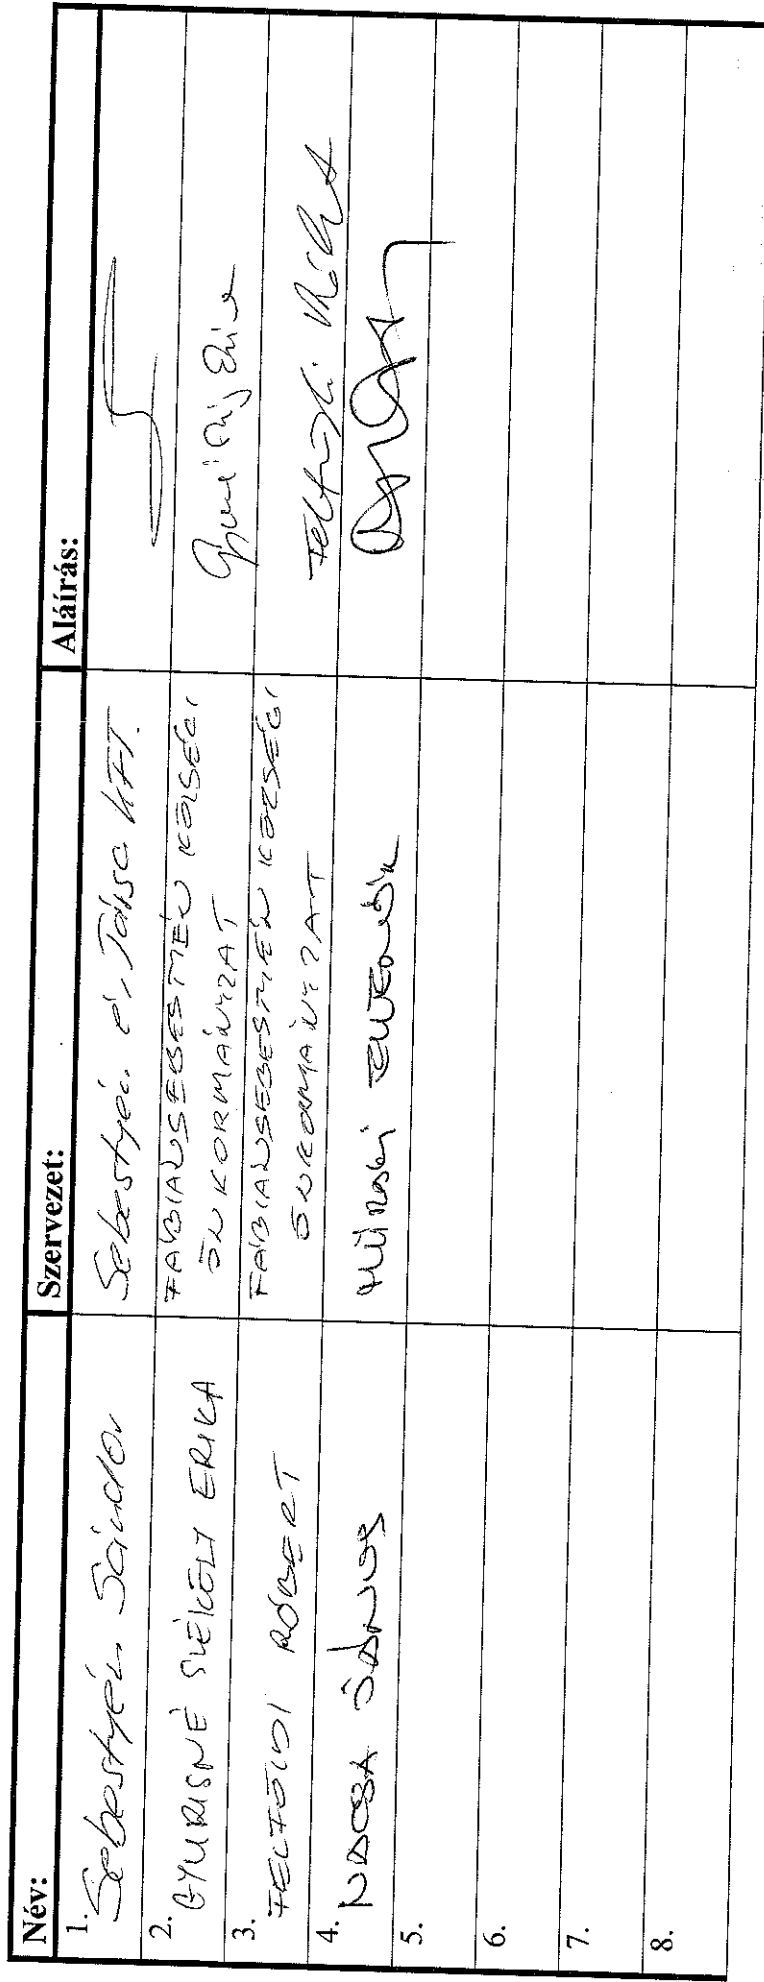 Név: Szervezet: Aláírás:
1. Sebestyén Sándor Sebestyén és Társa KFT.
2. GYURISNÉ SZÉKELY ERIKA FÁBIÁNSEBESTYÉN KÖZSÉGI
ÖNKORMÁNYZAT
3. FELFÖLDI RÓBERT FÁBIÁNSEBESTYÉN KÖZSÉGI
ÖNKORMÁNYZAT
Felföldi Róbert
4. JÁNOS MŰSZAKI ELLENŐR
5.
6.
7.
8.